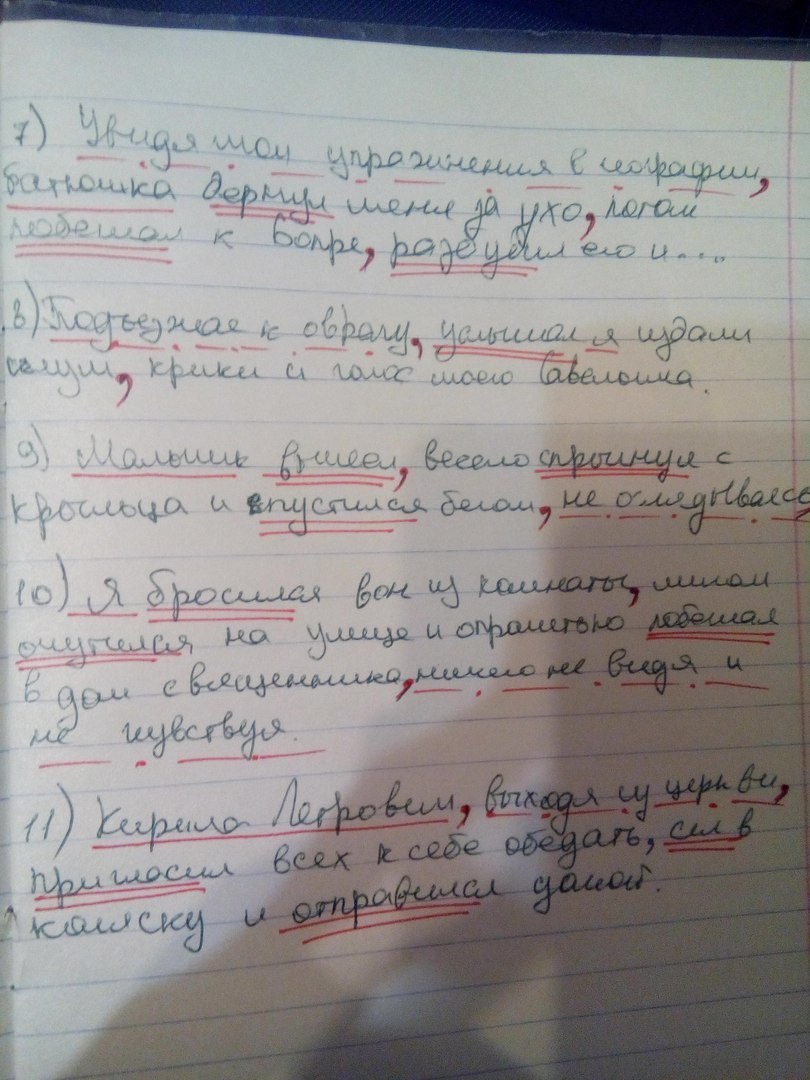 7) Увидя мои упражнения в географии,
батюшка дернул меня за ухо, потом
побежал к Бопре, разбудил его и....
8) Подъезжая к оврагу, услышал я издали
шум, крики и голос моего Савельича.
9) Малыш вышел, весело спрыгнул с
крыльца и спустился бегом, не оглядываясь
10) Я бросился вон из комнаты, мигом
очутился на улице и опрометью побежал
в дом священника, ничего не видя и
не чувствуя.
11) Кирила Петрович, выходя из церкви,
пригласил всех к себе обедать, сел в
коляску и отправился домой.